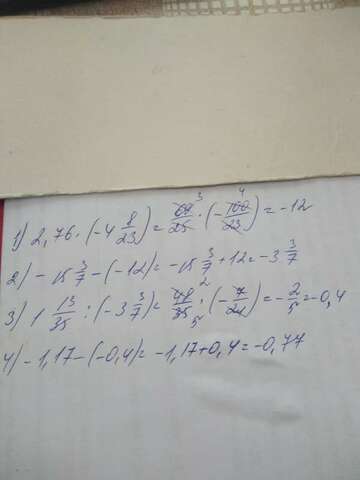 1) 2,76 · (-4 8/23) = 69/25 · (-100/23) = -12
2) - 15 3/7 - (-12) = -15 3/7 + 12 = -3 3/7
3) 1 13/35 : (-3 3/7) = 48/35 · (-7/24) = -2/5 = -0,4
4) - 1,17 - (-0,4) = -1,17 + 0,4 = -0,77